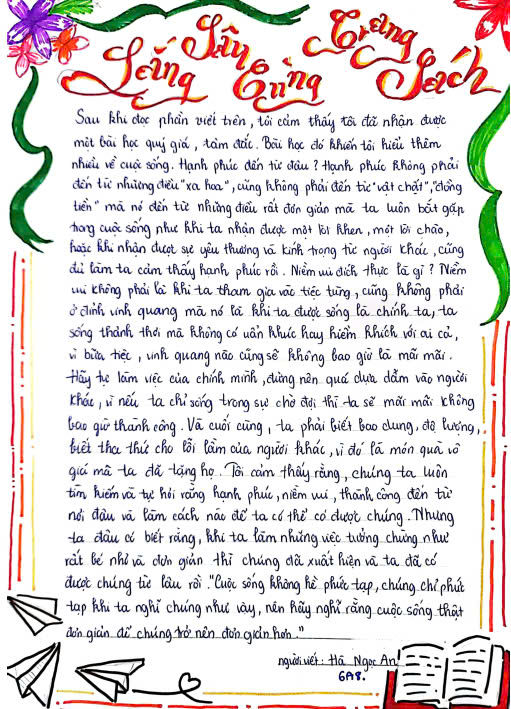 Lắng Sâu Cùng Trang Sách
Sau khi đọc phần viết trên, tôi cảm thấy tôi đã nhận được
một bài học quý giá, tâm đắc. Bài học đó khiến tôi hiểu thêm
nhiều về cuộc sống. Hạnh phúc đến từ đâu? Hạnh phúc không phải
đến từ những điều "xa hoa", cũng không phải đến từ "vật chất", "đồng
tiền" mà nó đến từ những điều rất đơn giản mà ta luôn bắt gặp
trong cuộc sống như khi ta nhận được một lời khen, một lời chào,
hoặc khi nhận được sự yêu thương và kính trọng từ người khác, cũng
đủ làm ta cảm thấy hạnh phúc rồi. Niềm vui đích thực là gì? Niềm
vui không phải là khi ta tham gia vào tiệc tùng, cũng không phải
ở đỉnh vinh quang mà nó là khi ta được sống là chính ta, ta
sống thảnh thơi mà không có uẩn khúc hay hiềm khích với ai cả,
vì bữa tiệc, vinh quang nào cũng sẽ không bao giờ là mãi mãi.
Hãy tự làm việc của chính mình, đừng nên quá dựa dẫm vào người
khác, vì nếu ta chỉ sống trong sự chờ đợi thì ta sẽ mãi mãi không
bao giờ thành công. Và cuối cùng, ta phải biết bao dung, độ lượng,
biết tha thứ cho lỗi lầm của người khác, vì đó là món quà vô
giá mà ta đã tặng họ. Tôi cảm thấy rằng, chúng ta luôn
tìm kiếm và tự hỏi rằng hạnh phúc, niềm vui, thành công đến từ
nơi đâu và làm cách nào để ta có thể có được chúng. Nhưng
ta đâu có biết rằng, khi ta làm những việc tưởng chừng như
rất bé nhỏ và đơn giản thì chúng đã xuất hiện và ta đã có
được chúng từ lâu rồi. "Cuộc sống không hề phức tạp, chúng chỉ phức
tạp khi ta nghĩ chúng như vậy, nên hãy nghĩ rằng cuộc sống thật
đơn giản để chúng trở nên đơn giản hơn."
người viết: Hà Ngọc An
6A8.